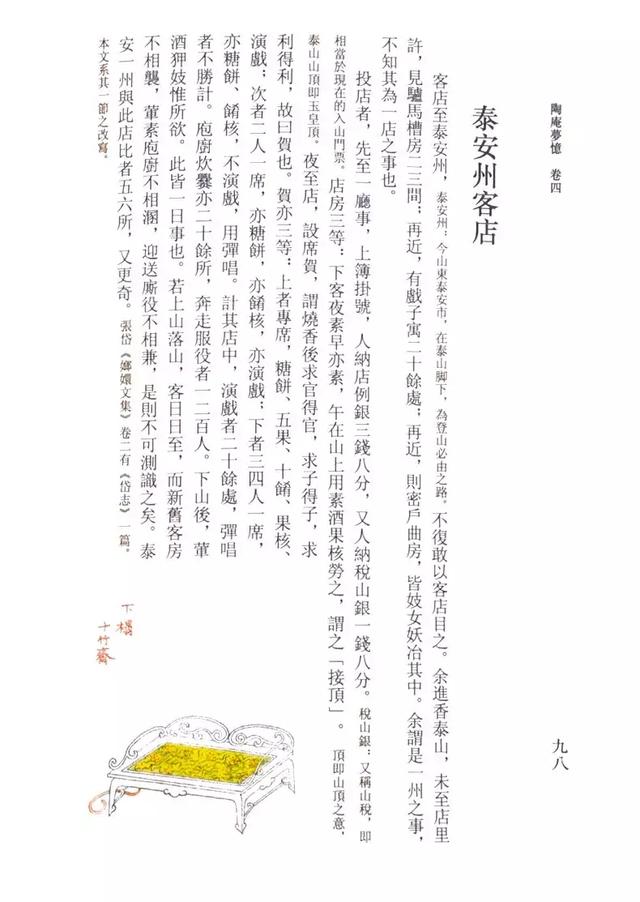 陶庵夢憶 卷四
九八
泰安州客店
客店至泰安州,泰安州:今山東泰安市,在泰山脚下,為登山必由之路。不復敢以客店目之。余進香泰山,未至店里
許,見驢馬槽房二三間;再近,有戲子寓二十餘處;再近,則密戶曲房,皆妓女妖冶其中。余謂是一州之事,
不知其為一店之事也。
投店者,先至一廳事,上簿掛號,人納店例銀三錢八分,又人納稅山銀一錢八分。稅山銀:又稱山稅,即
相當於現在的入山門票。店房三等:下客夜素早亦素,午在山上用素酒果核勞之,謂之「接頂」。頂即山頂之意,
泰山山頂即玉皇頂。夜至店,設席賀,謂燒香後求官得官,求子得子,求
利得利,故曰賀也。賀亦三等:上者專席,糖餅、五果、十餚、果核、
演戲;次者二人一席,亦糖餅,亦餚核,亦演戲;下者三四人一席,
亦糖餅、餚核,不演戲,用彈唱。計其店中,演戲者二十餘處,彈唱
者不勝計。庖廚炊爨亦二十餘所,奔走服役者一二百人。下山後,葷
酒狎妓惟所欲。此皆一日事也。若上山落山,客日日至,而新舊客房
不相襲,葷素庖廚不相溷,迎送廝役不相兼,是則不可測識之矣。泰
安一州與此店比者五六所,又更奇。張岱《嫏嬛文集》卷二有《岱志》一篇。
本文系其一節之改寫。
下榻
十竹齋